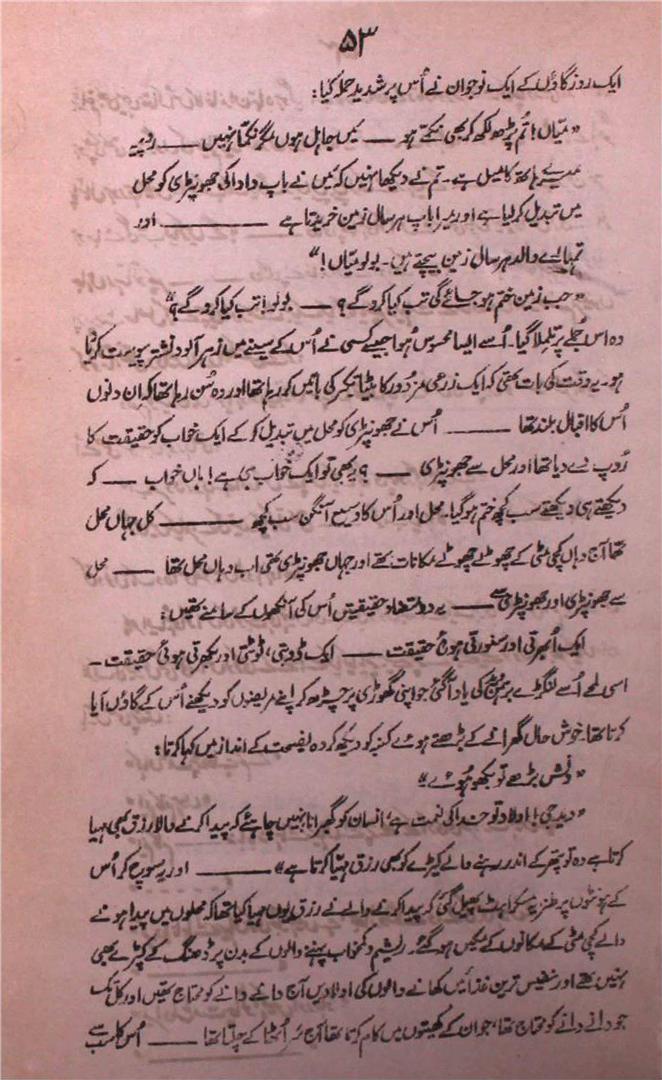 ۵۳
ایک روز گاؤں کے ایک نوجوان نے اُس پر شدید حملہ کیا:
"میّاں! تُم پڑھ لکھ کر بھی نکمّے ہو ــــــ مَیں جاہل ہوں مگر نکما نہیں ــــــ روپیہ
میرے ہاتھ کا میل ہے۔ تم نے دیکھا نہیں کہ مَیں نے باپ دادا کی جھونپڑی کو محل
میں تبدیل کرلیا ہے اور میرا باپ ہر سال زمین خریدتا ہے ــــــ اور
تمہارے والد ہر سال زمین بیچتے ہیں۔ بولو میّاں!"
"جب زمین ختم ہو جائے گی تب کیا کرو گے؟ ــــــ بولو! تب کیا کرو گے؟"
وہ اس جُملے پر تلملا گیا۔ اُسے ایسا محسوس ہُوا جیسے کسی نے اُس کے سینے میں زہر آلود نشتر پیوست کر دیا
ہو۔ یہ وقت کی بات تھی کہ ایک زرعی مزدور کا بیٹا بڑھ چڑھ کر باتیں کر رہا تھا اور وہ سُن رہا تھا کہ ان دنوں
اُس کا اقبال بلند تھا ــــــ اُس نے جھونپڑی کو محل میں تبدیل کر کے ایک خواب کو حقیقت کا
رُوپ دے دیا تھا اور محل سے جھونپڑی ــــــ ؟ یہ بھی تو ایک خواب ہی ہے! ہاں خواب ــــــ کہ
دیکھتے ہی دیکھتے سب کچھ ختم ہو گیا۔ محل اور اُس کا وسیع آنگن سب کچھ ــــــ کل جہاں محل
تھا آج وہاں کچی مٹی کے چھوٹے چھوٹے مکانات تھے اور جہاں جھونپڑی تھی اب وہاں محل تھا ــــــ محل
سے جھونپڑی اور جھونپڑی سے ــــــ یہ دو متضاد حقیقتیں اُس کی آنکھوں کے سامنے تھیں:
ایک اُبھرتی اور سنورتی ہوئی حقیقت ــــــ ایک ڈوبتی، ٹوٹتی اور بکھرتی ہوئی حقیقت۔
اسی لمحے اُسے لنگڑے کی یاد آ گئی جو اپنی گھوڑی پر چڑھ کر اپنے مریضوں کو دیکھنے اُس کے گاؤں آیا
کرتا تھا۔ خوش حال گھرانے کے بڑھتے ہوئے کنبہ کو دیکھ کر وہ نصیحت کے انداز میں کہا کرتا:
بڑھے تو ہوئے"
"وید جی! اولاد تو خدا کی نعمت ہے، انسان کو گھبرانا نہیں چاہئے کہ پیدا کرنے والا رزق بھی مہیا
کرتا ہے وہ تو پتھر کے اندر رہنے والے کیڑے کو بھی رزق مہیّا کرتا ہے" ــــــ اور یہ سوچ کر اُس
کے ہونٹوں پر طنزیہ مسکراہٹ پھیل گئی کہ پیدا کرنے والے نے رزق یوں مہیا کیا تھا کہ محلوں میں پیدا ہونے
والے کچی مٹی کے مکانوں کے مکیں ہو گئے۔ ریشم و کمخواب پہننے والوں کے بدن پر ڈھنگ کے کپڑے بھی
نہیں تھے اور نفیس ترین غذائیں کھانے والوں کی اولادیں آج دانے دانے کو محتاج تھیں اور کل تک
جو دانے دانے کو محتاج تھا، جو ان کے کھیتوں میں کام کرتا تھا آج سَر اُٹھا کے چلتا تھا ــــــ اُس کا سب سے